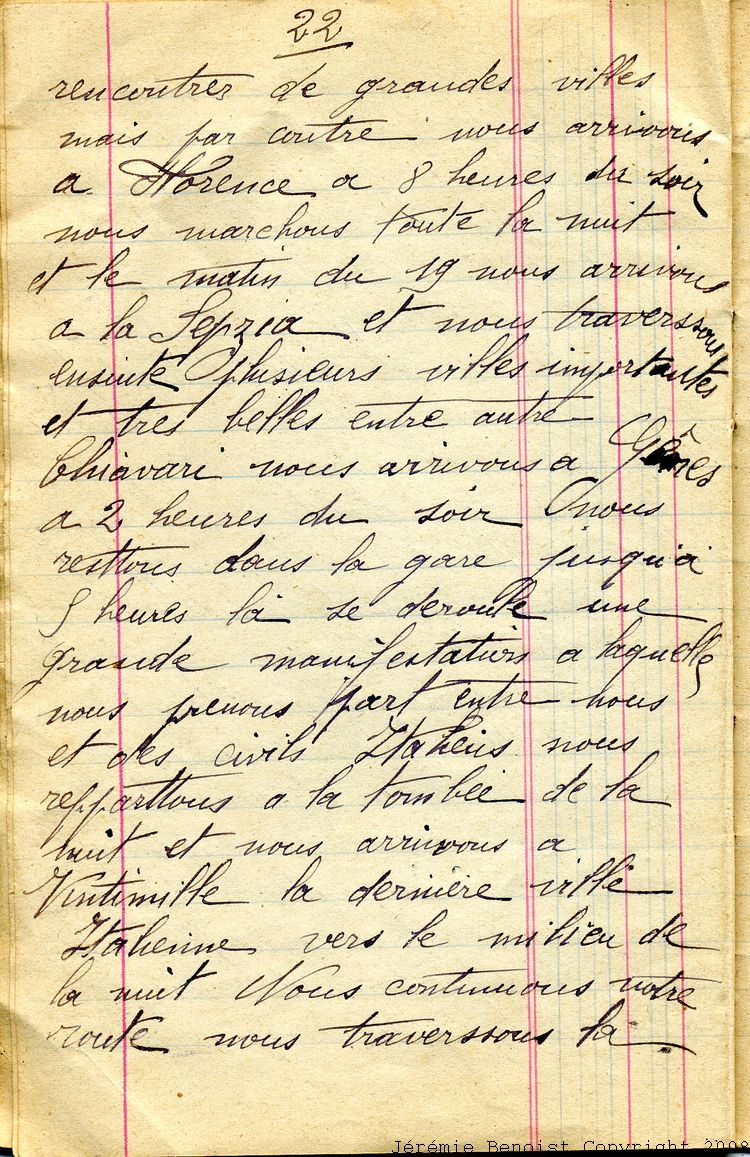 22
rencontrer de grandes villes
mais par contre nous arrivons
a Florence a 8 heures du soir
nous marchons toute la nuit
et le matin du 19 nous arrivons
a la Sepzia et nous traverssons
ensuite plusieurs villes importantes
et tres belles entre autre
Chiavari nous arrivons a Gênes
a 2 heures du soir nous
resttons dans la gare jusqu'a
5 heures là se deroule une
grande manifestations a laquelle
nous prenons part entre nous
et des civils Italiens nous
repparttons a la tombée de la
nuit et nous arrivons a
Vintimille la dernière ville
Italienne vers le milieu de
la nuit Nous continuons notre
route nous traverssons la
Jérémie Benoist Copyright 2008